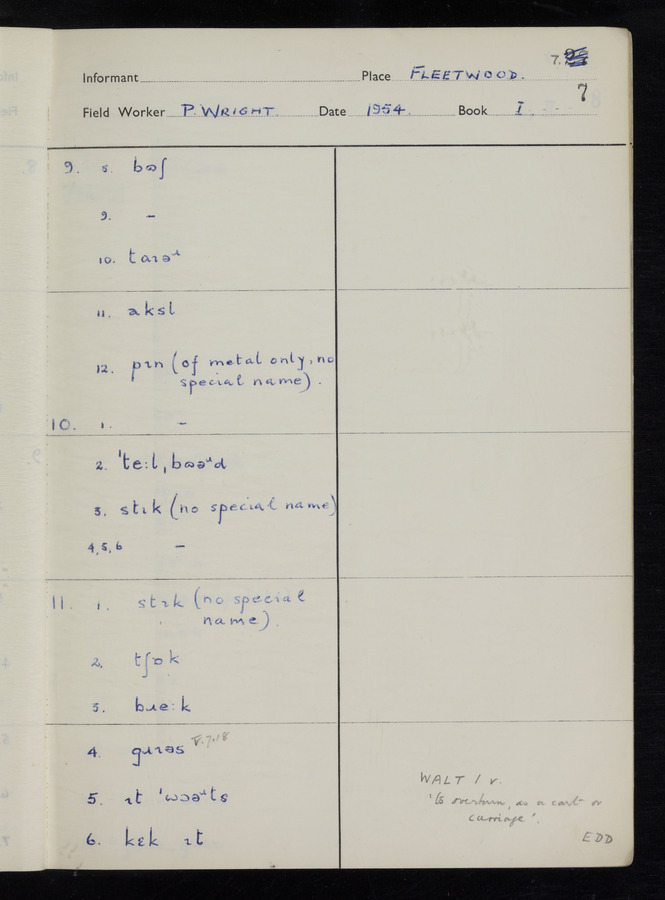 7.
Informant Place FLEETWOOD.
7
Field Worker P. WRIGHT. Date 1954. Book I.
9. 8. bɷʃ
9. –
10. taɪəʴ
11. aksl
12. pɪn (of metal only, no
special name).
10. 1. –
2. ˈteːl,bɷəʴd
3. stɪk (no special name)
4, 5, 6 –
11. 1. stɪk (no special
name).
2. tʃɒk
3. bɹeːk
4. gɹɪəs V.7.18
5. ɪt ˈwɔəʴts
6. kɛk ɪt
WALT 1 v.
'to overturn, as a cart or
carriage'.
EDD